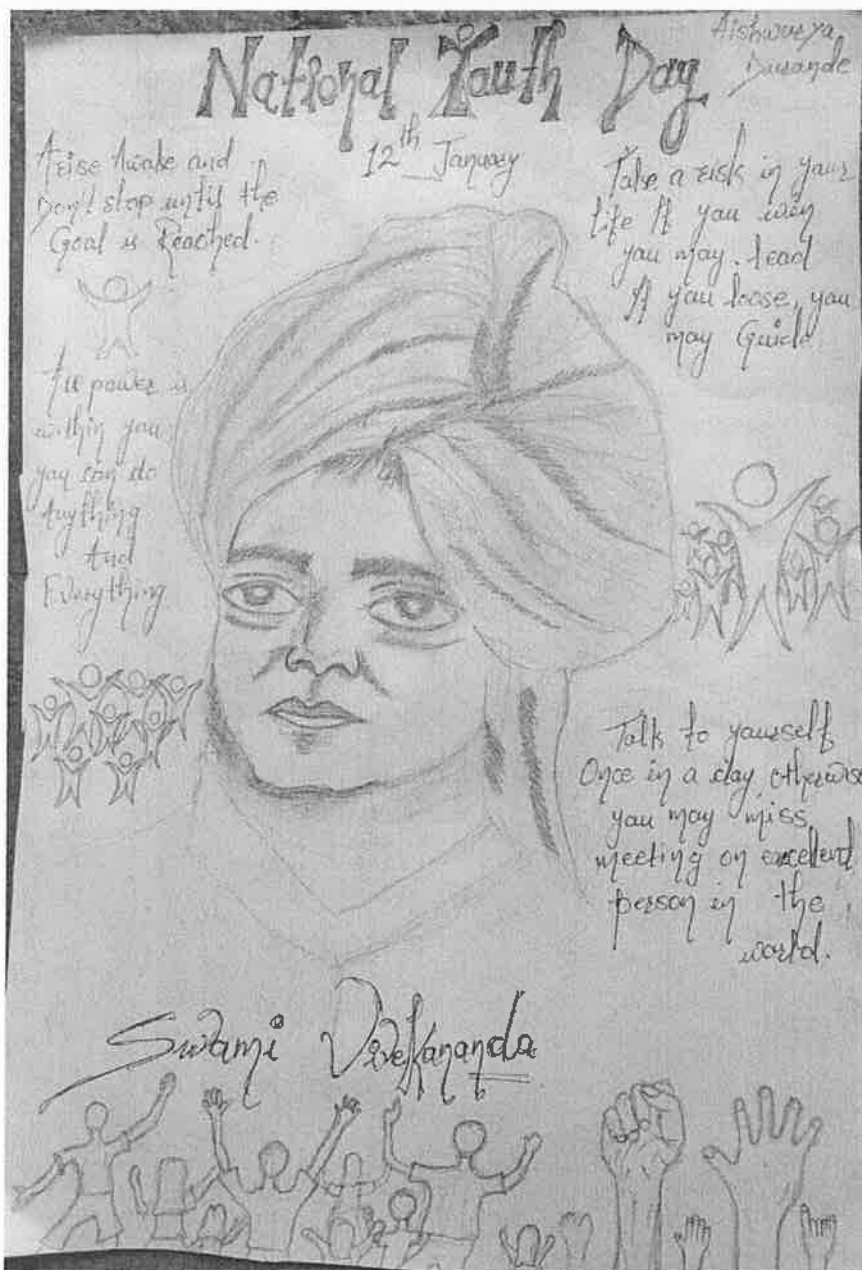 National Youth Day
Aishwarya
12th January
Arise Awake and
Don't stop until the
Goal is Reached.
All power is
within you
you can do
Anything
And
Everything
Take a risk in your
life If you win
you may lead
If you loose, you
may Guide
Talk to yourself
Once in a day, otherwise
you may miss
meeting on excellent
person in the
world.
Swami Vivekananda